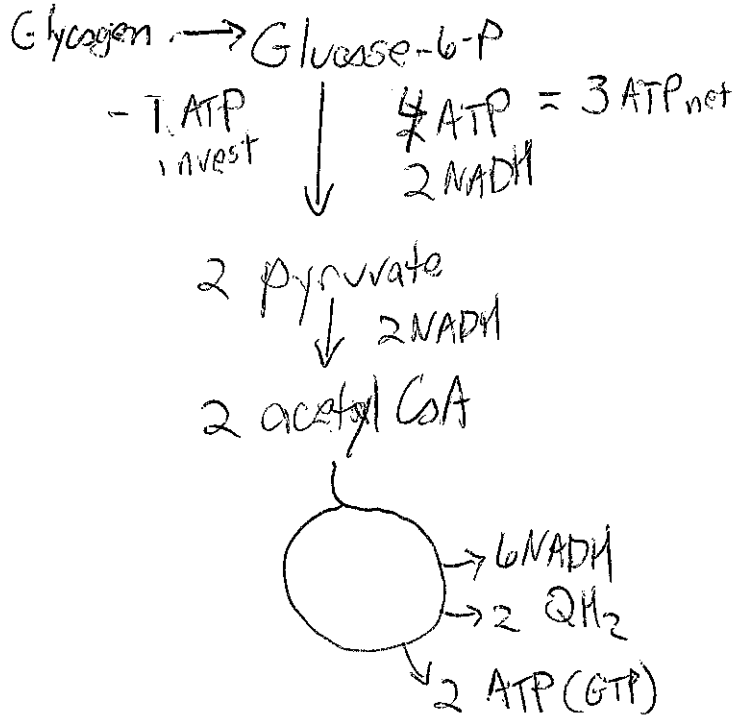 Glycogen → Glucose-6-P
-1 ATP invest
4 ATP = 3 ATP net
2 NADH
2 pyruvate
2 NADH
2 acetyl CoA
6 NADH
2 QH₂
2 ATP (GTP)